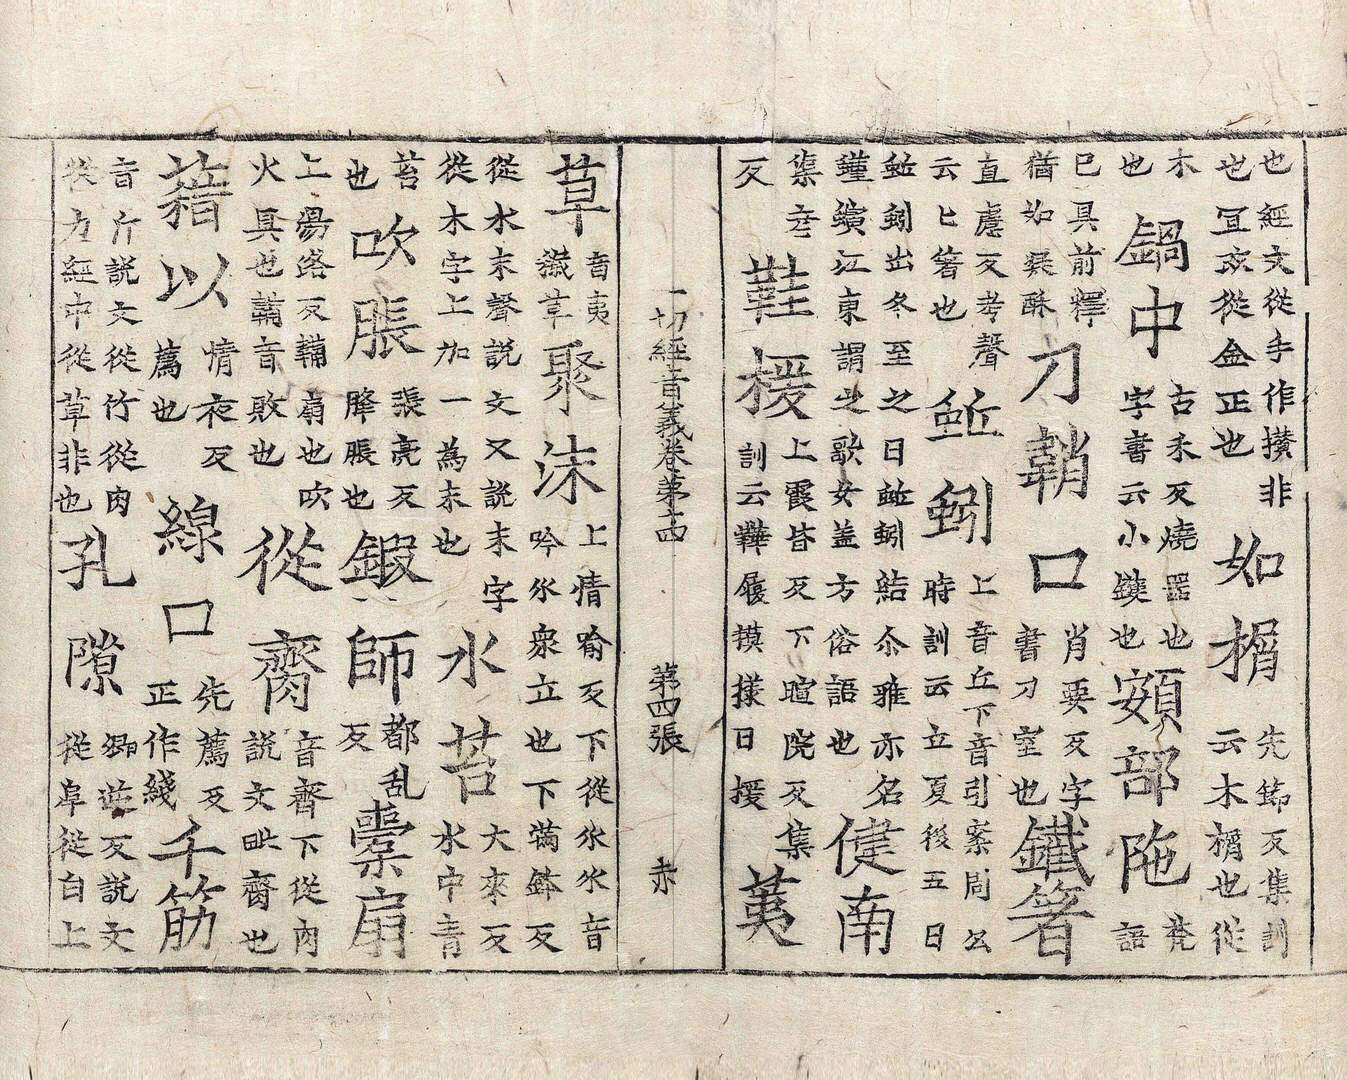 也經文從手作攢非也冝亥從金正也如楈先節反集訓云木楈也從
木也鍋中古禾反燒器也字書云小鑊也頞部陁梵語
已具前釋猶如凝酥刀鞘口肖要反字書刀室也鐵箸
直慮反考聲云匕箸也蚯蚓上音丘下音引案周公時訓云立夏後五日
蚯蚓出冬至之日蚯蚓結尒雅亦名螾江東謂之歌女盖方俗語也健南
集彦反鞋楥上霞皆反下暄院反集訓云鞾履摸㨾曰援荑
一切經音義卷第十四 第四張 赤
草音夷穢草聚沫上情喻反下從乑乑音吟乑衆立也下滿鉢反
從水末聲說文又說末字從木字上加一為末也水苔大來反水中青
苔也吹脹張亮反胮脹也鍛師都乱反橐扇
上湯洛反韛扇也吹火具也韛音敗也從臍音齊下從肉說文毗臍也
藉以情夜反薦也線口先薦反正作綫千筋
音斤說文從竹從肉從力經中從草非也孔隙卿逆反說文從阜從白上